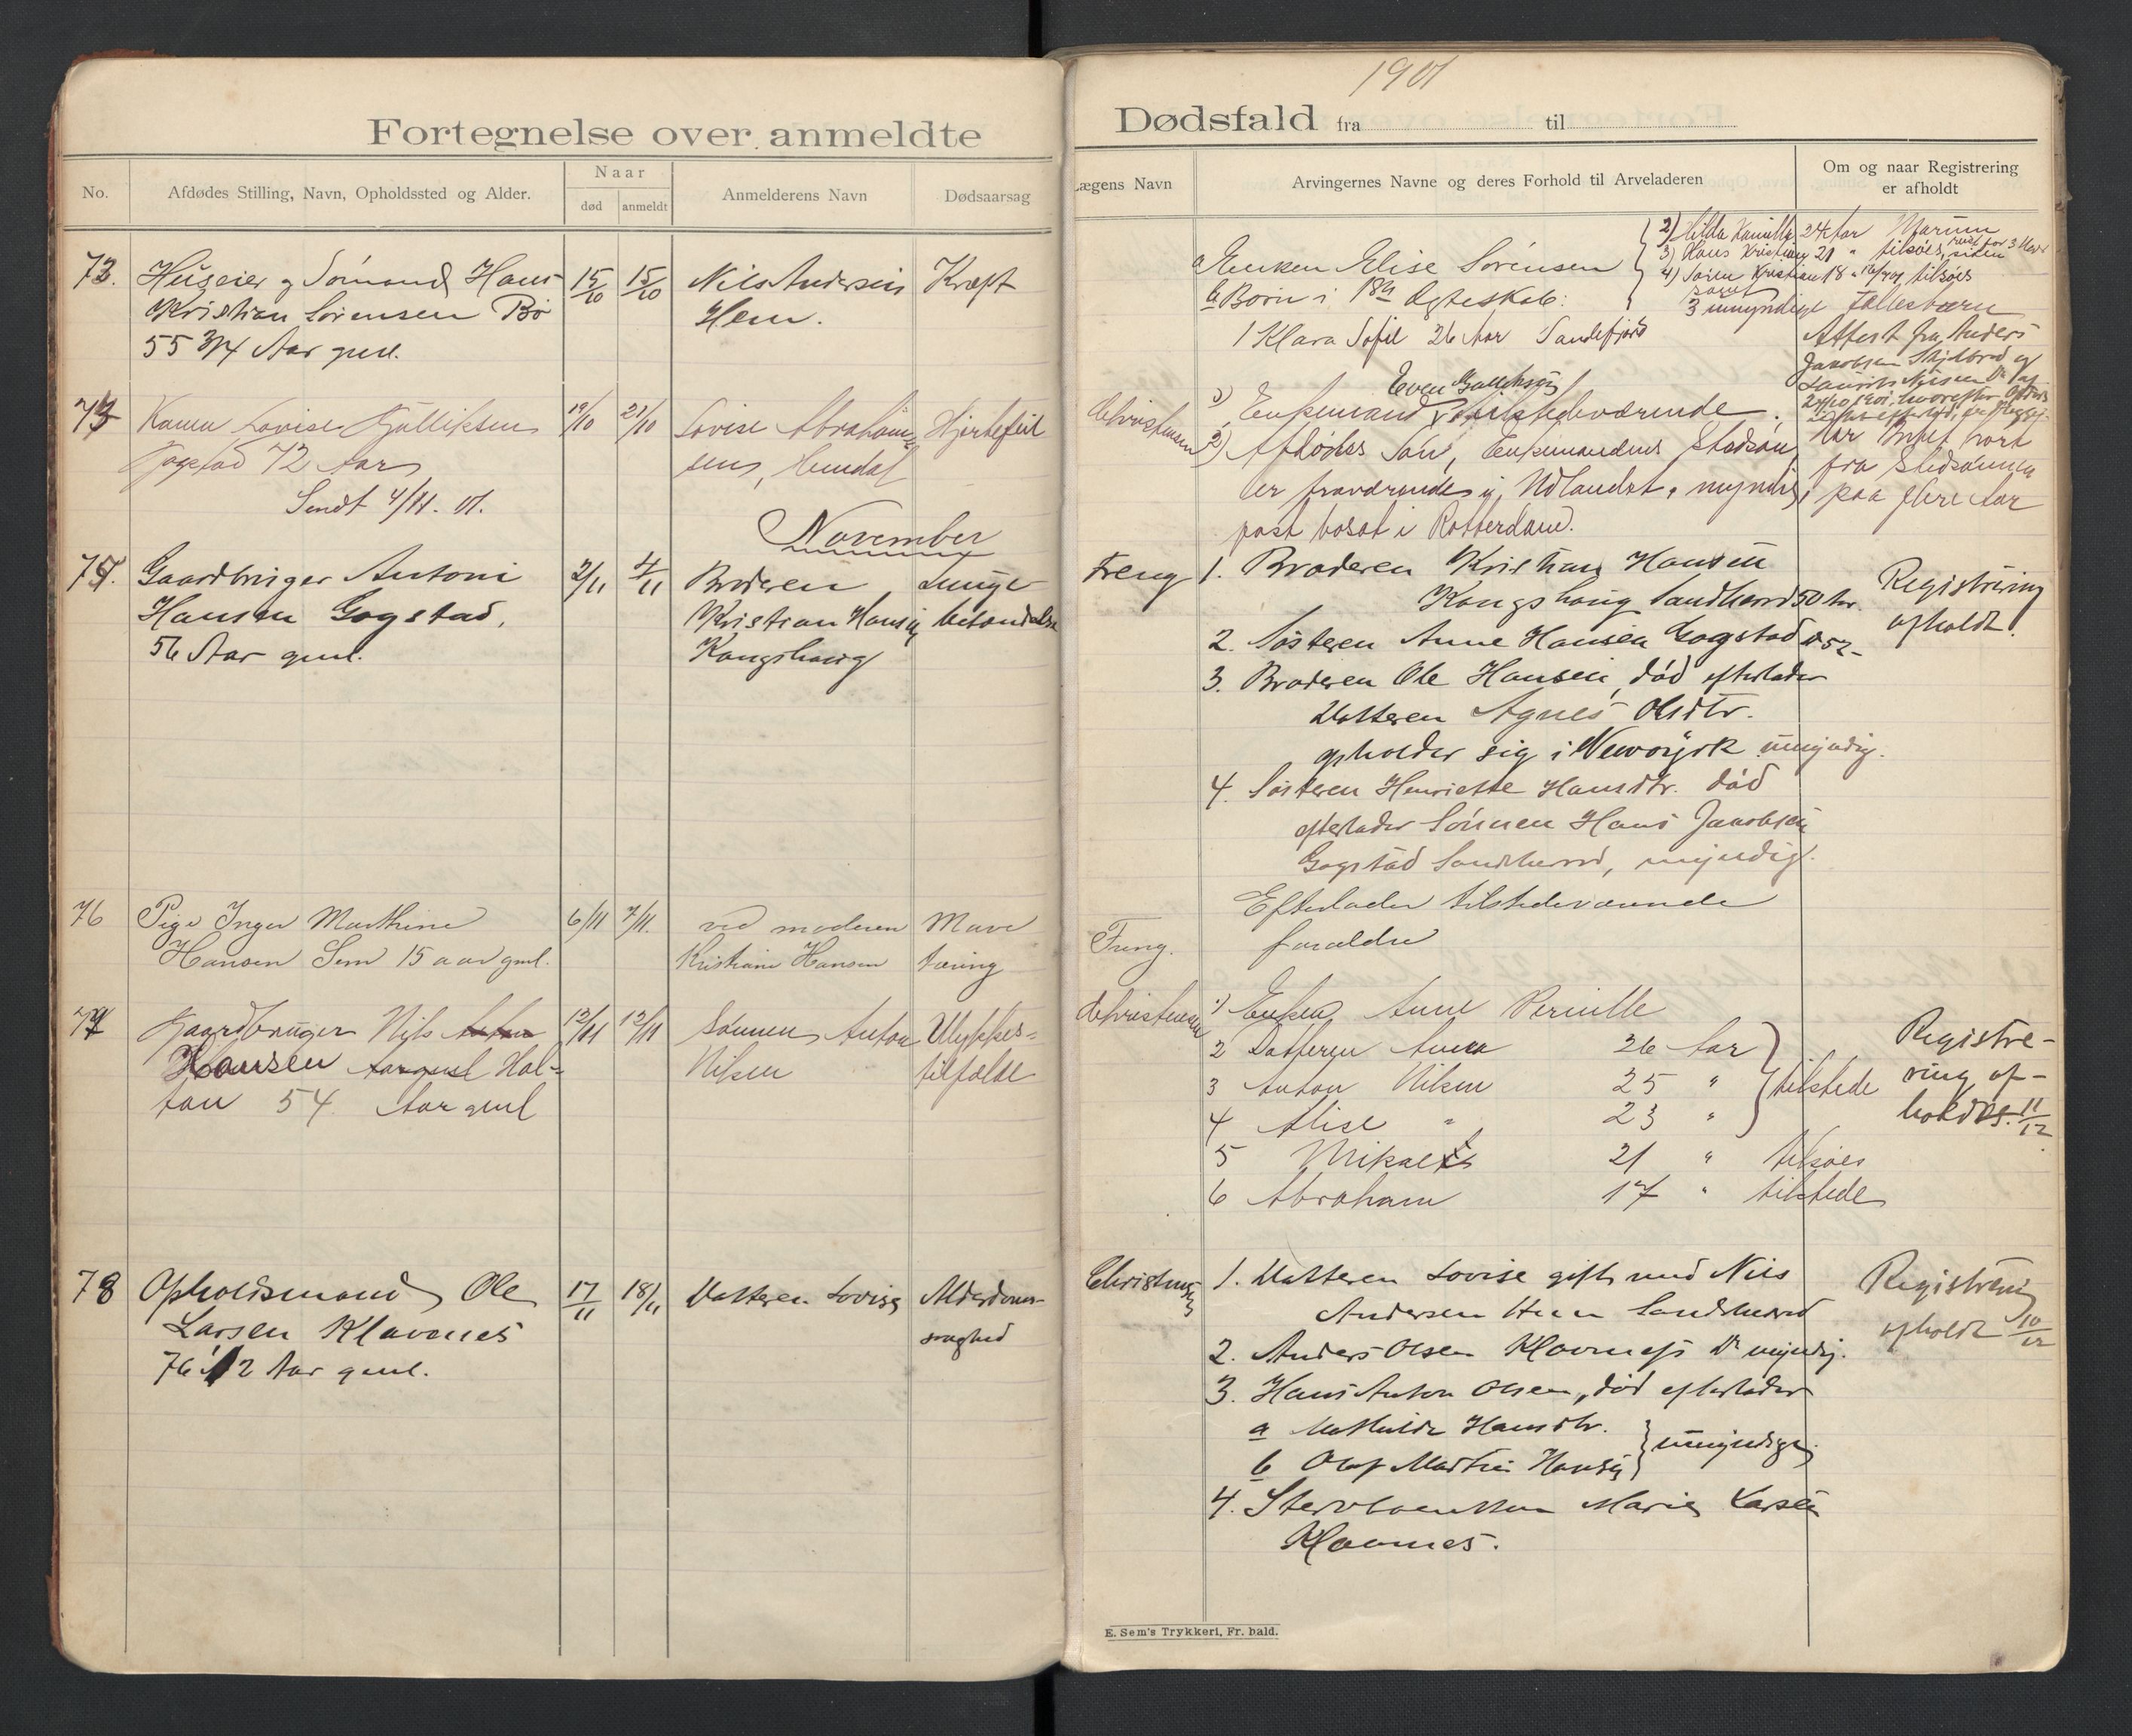 Fortegnelse over anmeldte
No.
Afdødes Stilling, Navn, Opholdssted og Alder.
Naar
død
anmeldt
Anmelderens Navn
Dødsaarsag
Huseier og Sømand Hans
Kristian Sørensen Bø
55 3/4 Aar gml.
15/10
15/10
Nils Andersen
Hem.
Kræft
Lovise Gulliksen
Gogstad 72 Aar
Sendt 4/11. 01.
19/10
21/10
Lovise Abraham-
sen, Hemdal
Hjertefeil
November
Gaardbruger Antoni
Hansen Gogstad,
56 Aar gml.
2/11
4/11
Broderen
Kristian Hansen
Kongshaug
Lunge
betændelse
76
Pige Inger Marthine
Hansen Sem 15 aar gml.
6/11
7/11.
ved moderen
Kristiane Hansen
Mave
tæring
77
Gaardbruger Nils
Hansen Hal-
tan 54 Aar gml
12/11
13/11
Sønnen Anton
Nilsen
Ulykkes-
tilfælde
78
Opholdsmand Ole
Larsen Klavenes
76 1/2 Aar gml.
17/11
18/11
Datteren Lovise
Alderdoms-
svaghed
1901
Dødsfald fra til
Lægens Navn
Arvingernes Navne og deres Forhold til Arveladeren
Om og naar Registrering
er afholdt
a Enken Elise Sørensen
b Børn i 1ste Ægteskab:
1 Klara Sofie 26 Aar Sandefjord
2) Hilda Kamilla 24 Aar
3) Hans Kristian 21 " tilsøes
4) Søren Kristian 18 " tilsøes
3 umyndige Fællesbørn
Attest fra Anders
Jakobsen
Christensen
1) Enkemand Even Gulliksen tilstedeværende.
2) Afdødes Søn, Enkemandens Stedsøn,
er fraværende i Udlandet, myndig,
fast bosat i Rotterdam.
Har Intet hørt
fra Stedsønnen
paa flere Aar
Freng
1. Broderen Kristian Hansen
Kongshaug Sandherred 50 Aar.
2. Søsteren Anne Hansen Gogstad " 52 -
3. Broderen Ole Hansen, død efterlader
Datteren Agnes Olsdtr.
opholder sig i Newøyork umyndig.
4. Søsteren Henriette Hansdtr. død
efterlader Sønnen Hans Jakobsen
Gogstad Sandherred, myndig.
Registrering
afholdt.
Freng.
Efterlader tilstedeværende
forældre
Christensen
1) Enken Anne Pernille
2 Datteren Anna 26 Aar
3 Anton Nilsen 25 "
4 Alise " 23 "
tilstede
5 Mikael 21 " tilsøes
6 Abraham 17 " tilstede
Registre-
ring af-
holdes 11/12
Christensen
1. Datteren Lovise gift med Nils
Andersen Hem Sandeherred
2. Anders Olsen Klavenes Do myndig.
3. Hans Anton Olsen, død efterlader
a Mathilde Hansdtr.
b Olaf Martin Hansen
umyndige
4. Sterbenken Marie Larsen
Klavenes.
Registrering
afholdt 10/12
E. Sem's Trykkeri, Fr. hald.